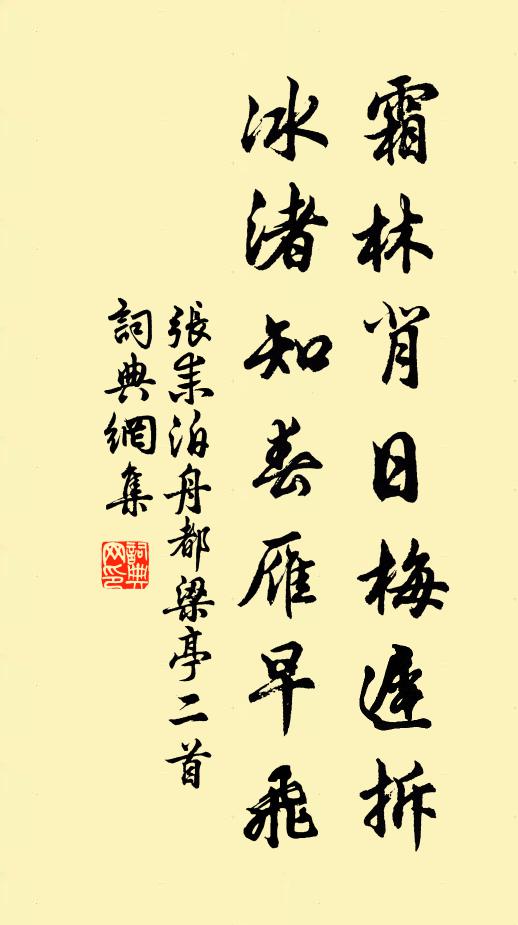 霜林背日梅遲拆
冰渚知春雁早飛
張耒泊舟都梁亭二首
詞典網集
詞典
网印